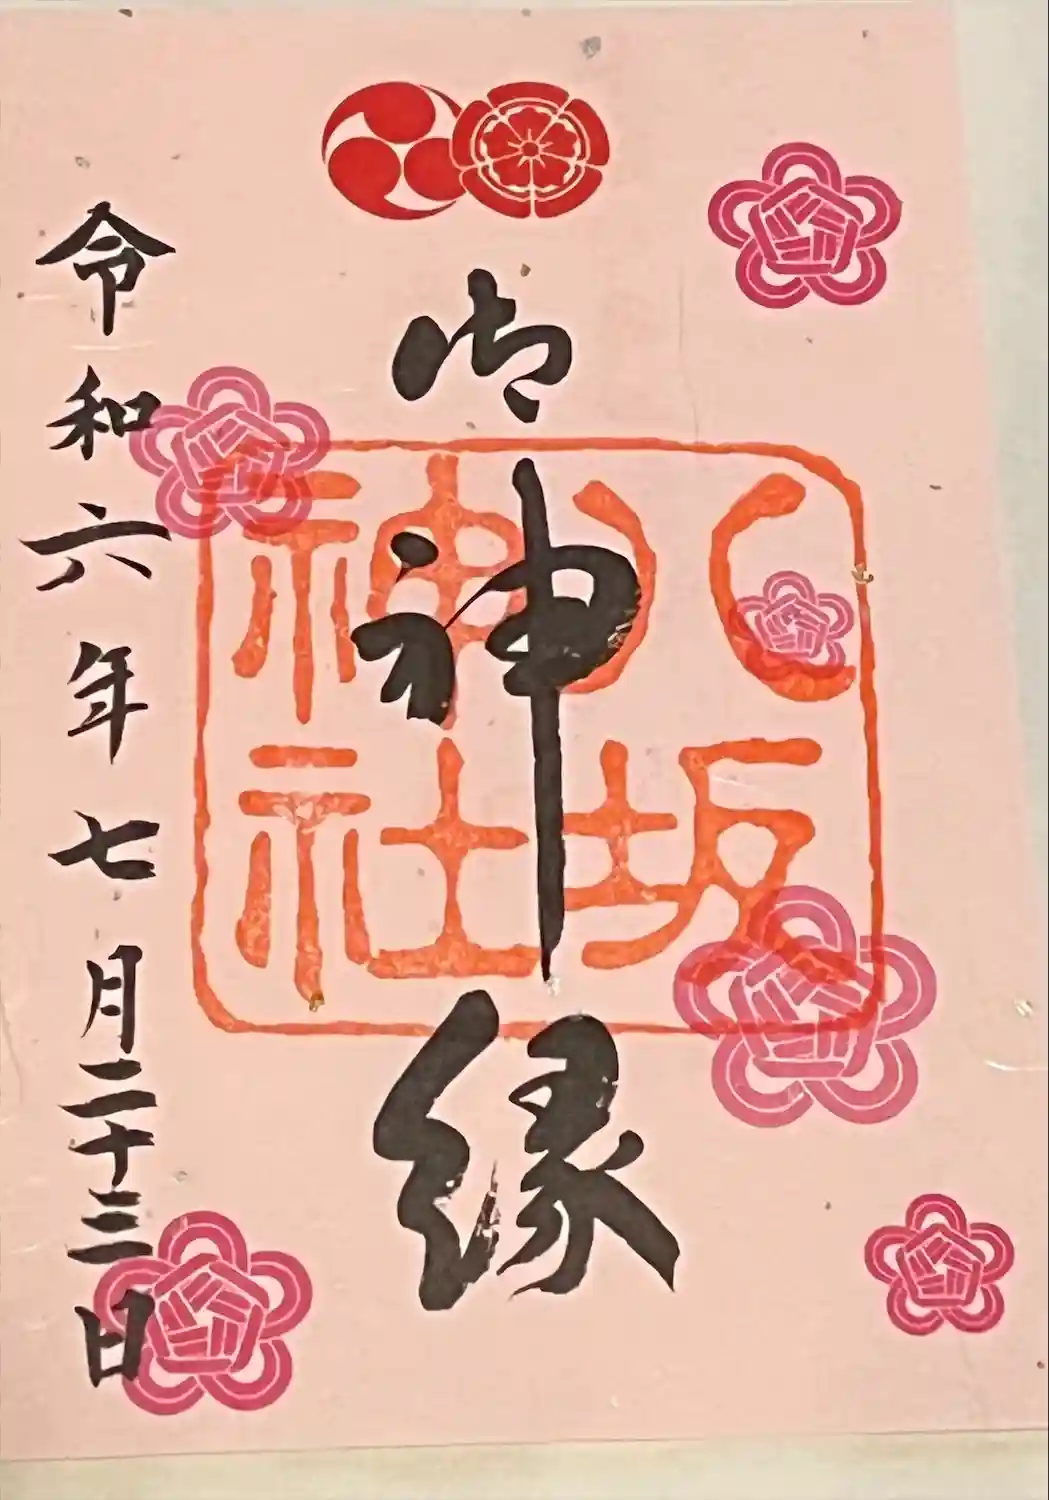 御神縁
八坂
神社
令和六年七月二十三日